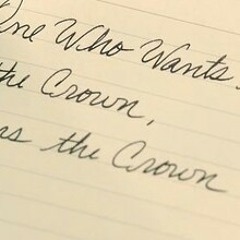 One Who Wants
the Crown,
the Crown